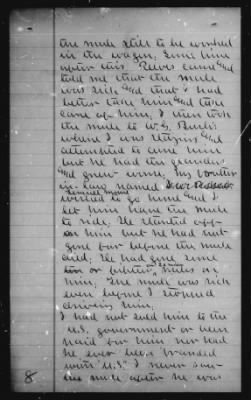 the mule still to be worked
in the wagon,
after this. came and
told me that the mule
was sick and that I had
better take him and take
care of him, I then took
the mule to W. G.
where I was staying and
attempted to cure him
but he had the glanders
and grew worse, his brother
in-law named
wished to go home and I
let him have the mule
to ride, he started off
on him but he had not
gone far before the mule
died, he had gone some
or fifteen miles on
him, The mule was sick
even before I stopped
driving him,
I had not sold him to the
U.S. government or been
paid for him nor had
he ever been branded
with "U.S." I never saw
the mule after he was
8